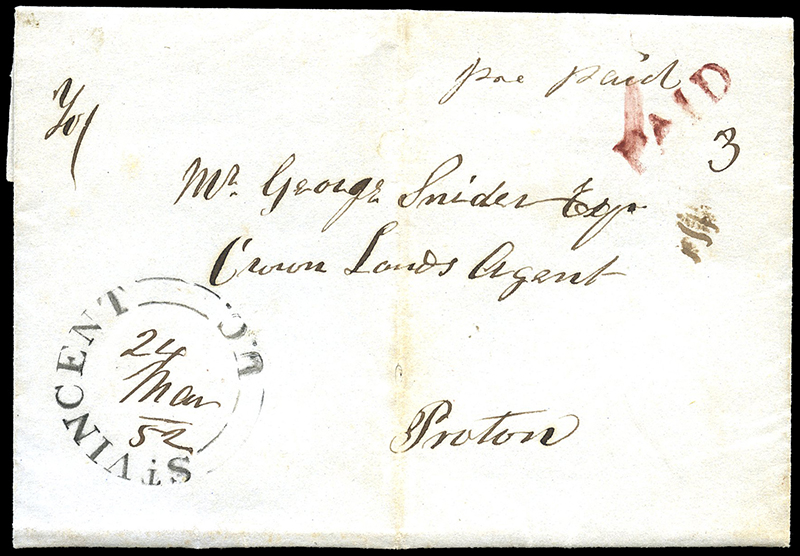 pre paid
PAID
3
Mr. George Snider Esq
Crown Lands Agent
Proton
ST VINCENT U.C.
24
Mar
52